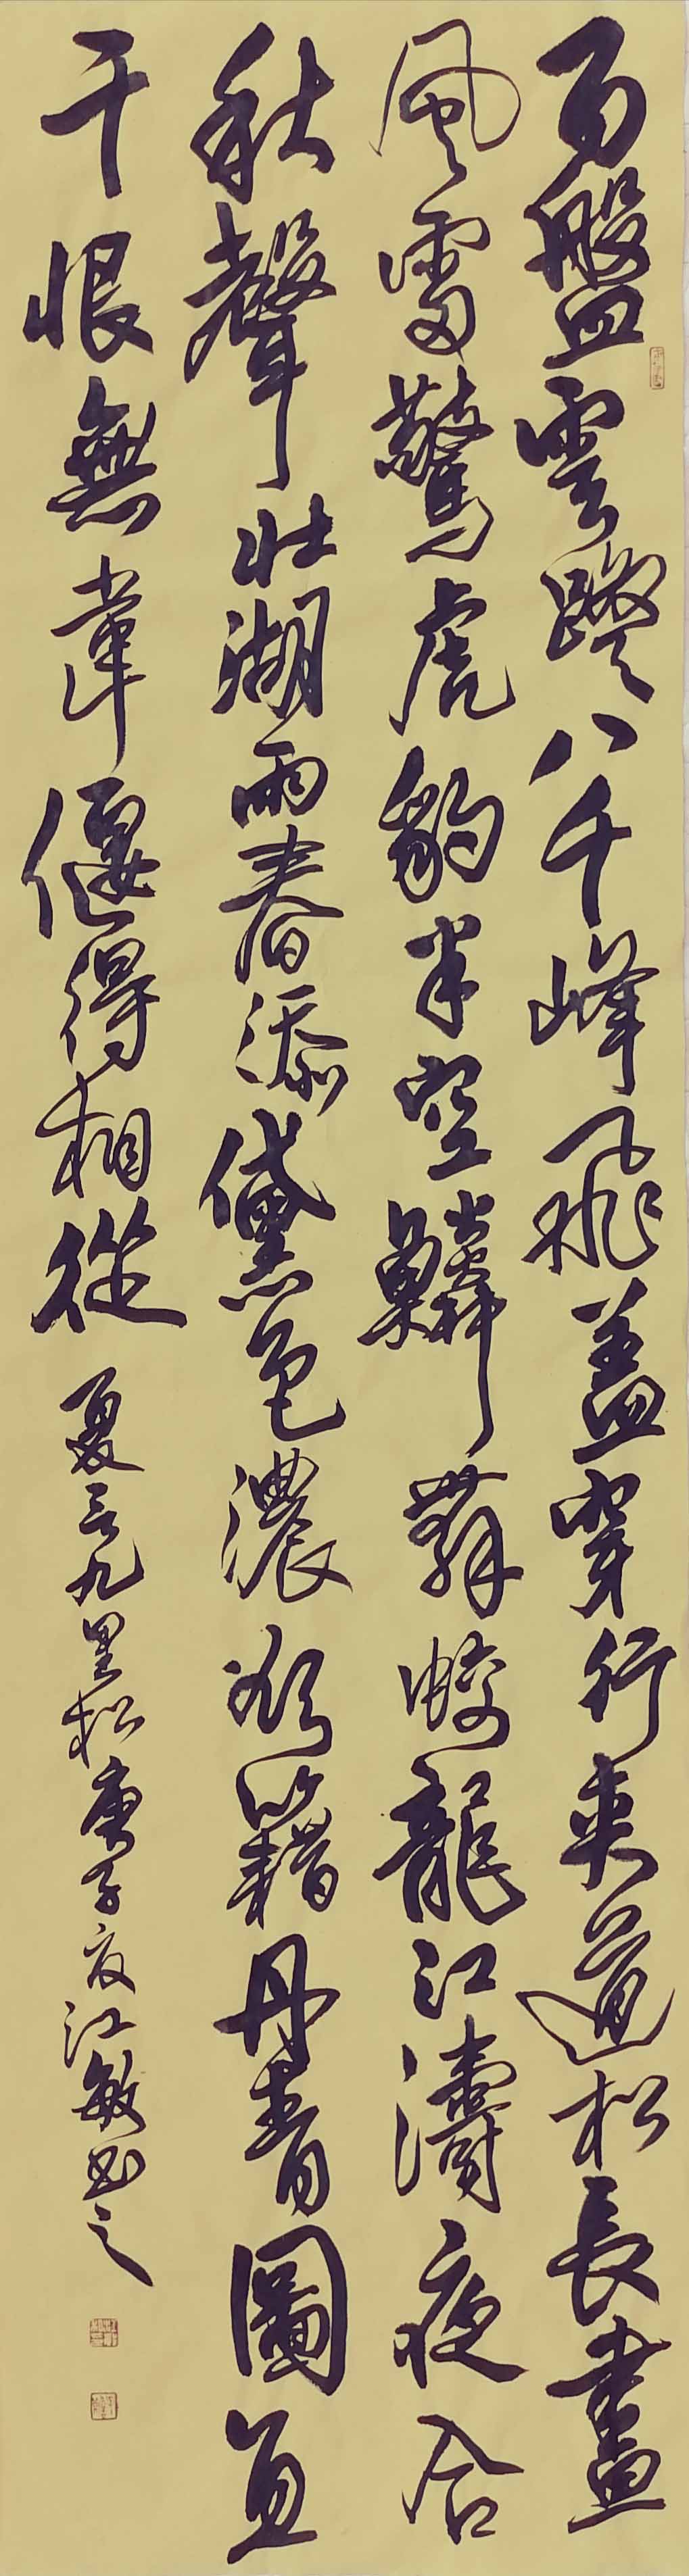 百盤雲蹬八千峰飛蓋穿行夾道松長晝
風雷驚虎豹半空鱗舞蛟龍江濤夜合
秋聲壯湖雨春添黛色濃欲籍丹青圖直
干恨無韋偃得相從 夏言九里松庚子夜江敏书之